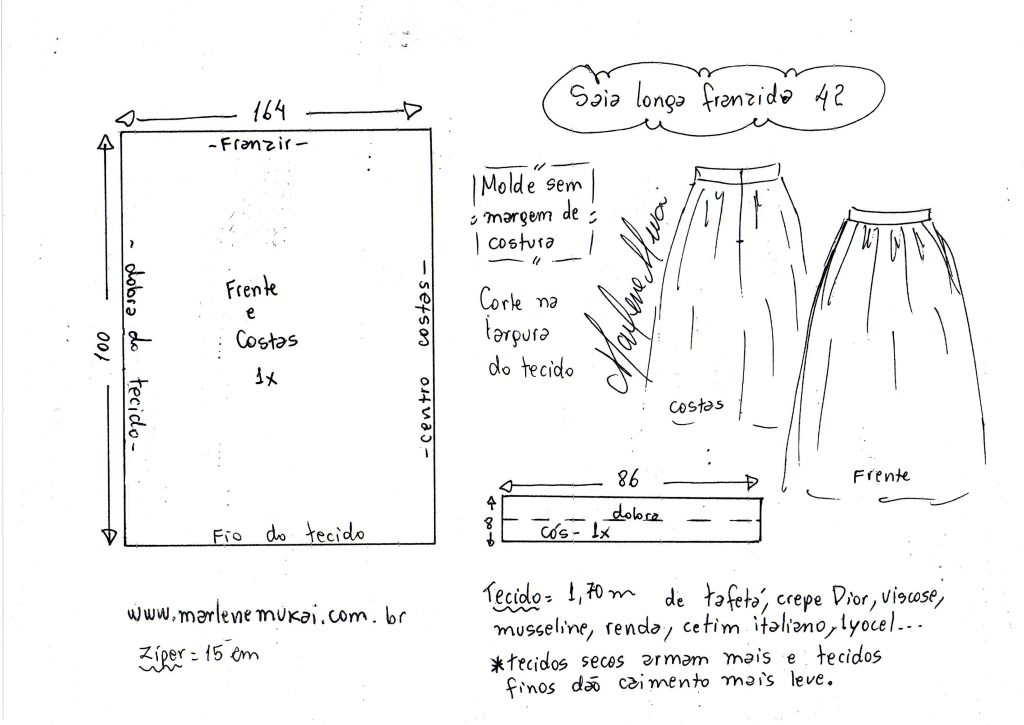 Saia longa franzida 42
164
-Franzir-
100
-dobra do tecido-
Frente
e
Costas
1x
-centro costas-
Fio do tecido
www.marlenemukai.com.br
Zíper = 15 cm
Molde sem
margem de
costura
Corte na
largura
do tecido
Marlene Mukai
costas
Frente
86
8
dobra
Cós - 1x
Tecido = 1,70 m de tafetá, crepe Dior, viscose,
musseline, renda, cetim italiano, lyocel...
*tecidos secos armam mais e tecidos
finos dão caimento mais leve.